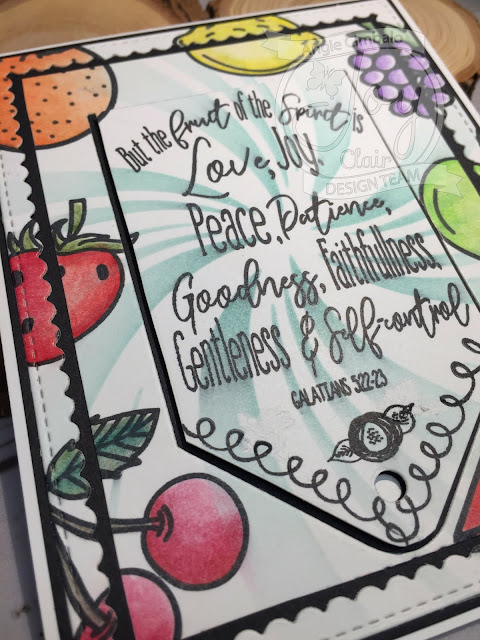 Angie Cimbalo
Clair
DESIGN TEAM
But the fruit of the Spirit is
Love, Joy,
Peace, Patience,
Goodness, Faithfulness,
Gentleness & Self-control
GALATIANS 5:22-23